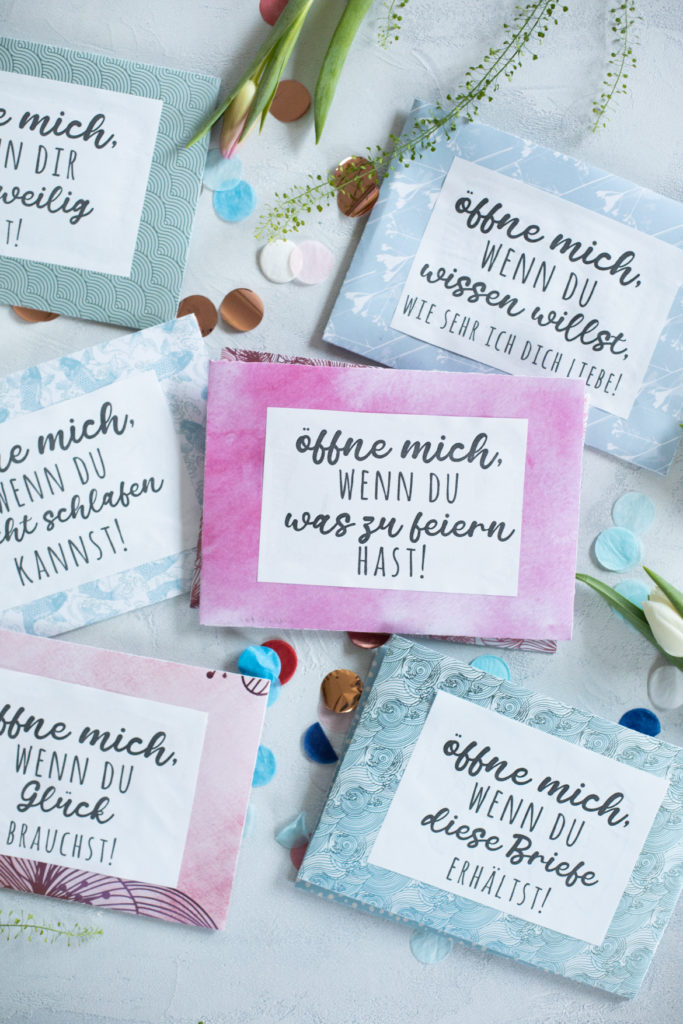 mich,
DIR
öffne mich,
WENN DU
wissen willst,
WIE SEHR ICH DICH LIEBE!
mich,
WENN DU
schlafen
KANNST!
öffne mich,
WENN DU
was zu feiern
HAST!
öffne mich,
WENN DU
Glück
BRAUCHST!
öffne mich,
WENN DU
diese Briefe
ERHÄLTST!